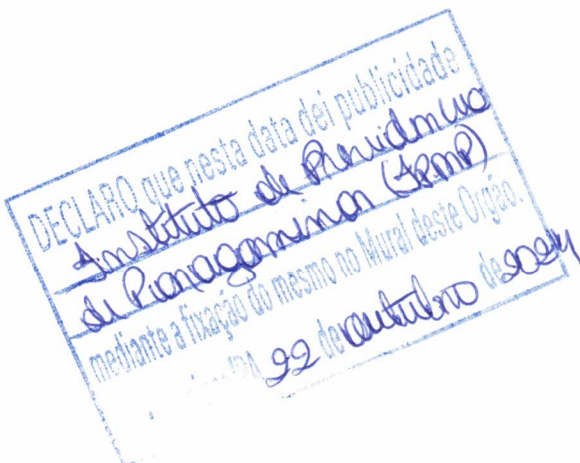 DECLARO que nesta data dei publicidade
Instituto de Previdência
de Paragominas (IPMP)
mediante a fixação do mesmo no Mural deste Orgão.
22 de outubro de 2024